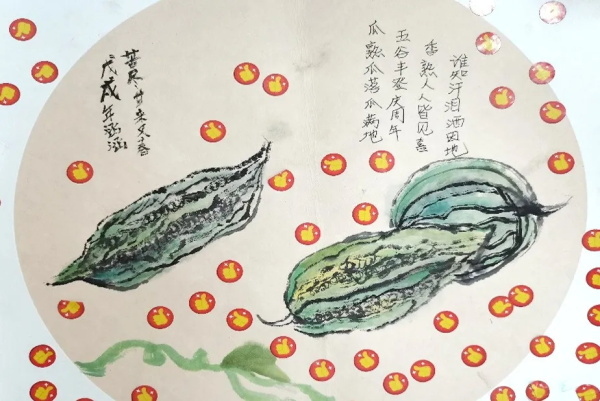 谁知汗泪洒田地
香熟人人皆见喜
五谷丰登庆周年
瓜瓜落瓜满地
苦尽甘来又
戊戌年涵涵